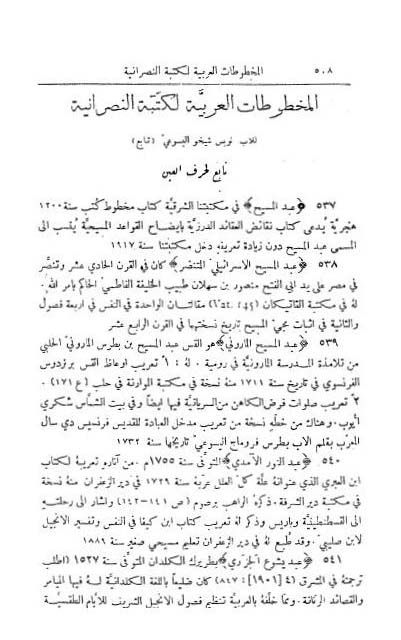 ٥٠٨ المخطوطات العربية لكتبة النصرانية
المخطوطات العربيَّة لكَتَبة النصرانية
للاب لويس شيخو اليسوعيّ (تابع)
تابع لحرف العين
٥٣٧ ﴿عبد المسيح﴾ في مكتبتنا الشرقيَّة كتاب مخطوط كُتب سنة ١٢٠٠
هجريَّة يُدعى كتاب نقائض العقائد الدرزيَّة بايضاح القواعد المسيحيَّة يُنسب الى
المسمى عبد المسيح دون زيادة تعريفهِ دخل مكتبتنا سنة ١٩١٧
٥٣٨ ﴿عبد المسيح الاسرائيلي المتنصّر﴾ كان في القرن الحادي عشر وتنصَّر
في مصر على يد ابي الفتح منصور بن سهلان طبيب الخليفة الفاطميّ الحاكم بامر الله.
لهُ في مكتبة الڤاتيكان مقالتان الواحدة في النفس في اربعة فصول
والثانية في اثبات مجيء المسيح تاريخ نسختها في القرن الرابع عشر
٥٣٩ ﴿عبد المسيح الماروني﴾ هو القس عبد المسيح بن بطرس الماروني الحلبي
من تلامذة المدرسة المارونيَّة في رومية ٠ لهُ : ١ً تعريب اوعاظ القس برزدوس
الفرنسوي في تاريخ سنة ١٧١١ منهُ نسخة في مكتبة الموارنة في حلب (ع ١٧١) ٠
٢ً تعريب صلوات فرض الكاهن من السريانيَّة فيها ايضاً وفي بيت الشمَّاس شكري
ايوب ٠ وهناك من خطّهِ نسخة من تعريب مدخل العبادة للقديس فرنسيس دي سال
المعرَّب بقلم الاب بطرس فروماج اليسوعيّ تاريخها سنة ١٧٣٢
٥٤٠ ﴿عبد النور الآمدي﴾ المتوفّى سنة ١٧٥٥م ٠ من آثارهِ تعريبهُ لكتاب
ابن العبري الذي عنوانهُ علَّة كل العلل عرَّبهُ سنة ١٧٢٩ في دير الزعفران منهُ نسخة
في مكتبة دير الشرفة ٠ ذكرهُ الراهب برصوم (ص ١٤١–١٤٢) واشار الى رحلتهِ
الى القسطنطينيَّة وباريس وذكر لهُ تعريب كتاب ابن كيفا في النفس وتفسير الانجيل
لابن صليبي ٠ وقد طُبع لهُ في دير الزعفران تعليم مسيحي صغير سنة ١٨٨٦
٥٤١ ﴿عبد يشوع الجزري﴾ بطريرك الكلدان المتوفّى سنة ١٥٦٧ (اطلب
ترجمتهُ في الشرق ٤ [١٩٠١] : ٨٤٧) كان ضليعاً باللغة الكلدانيَّة لهُ فيها الميامر
والقصائد الرنَّانة ٠ وممَّا خلَّفهُ بالعربيَّة تنظيم فصول الانجيل الشريف للايَّام الطقسيَّة